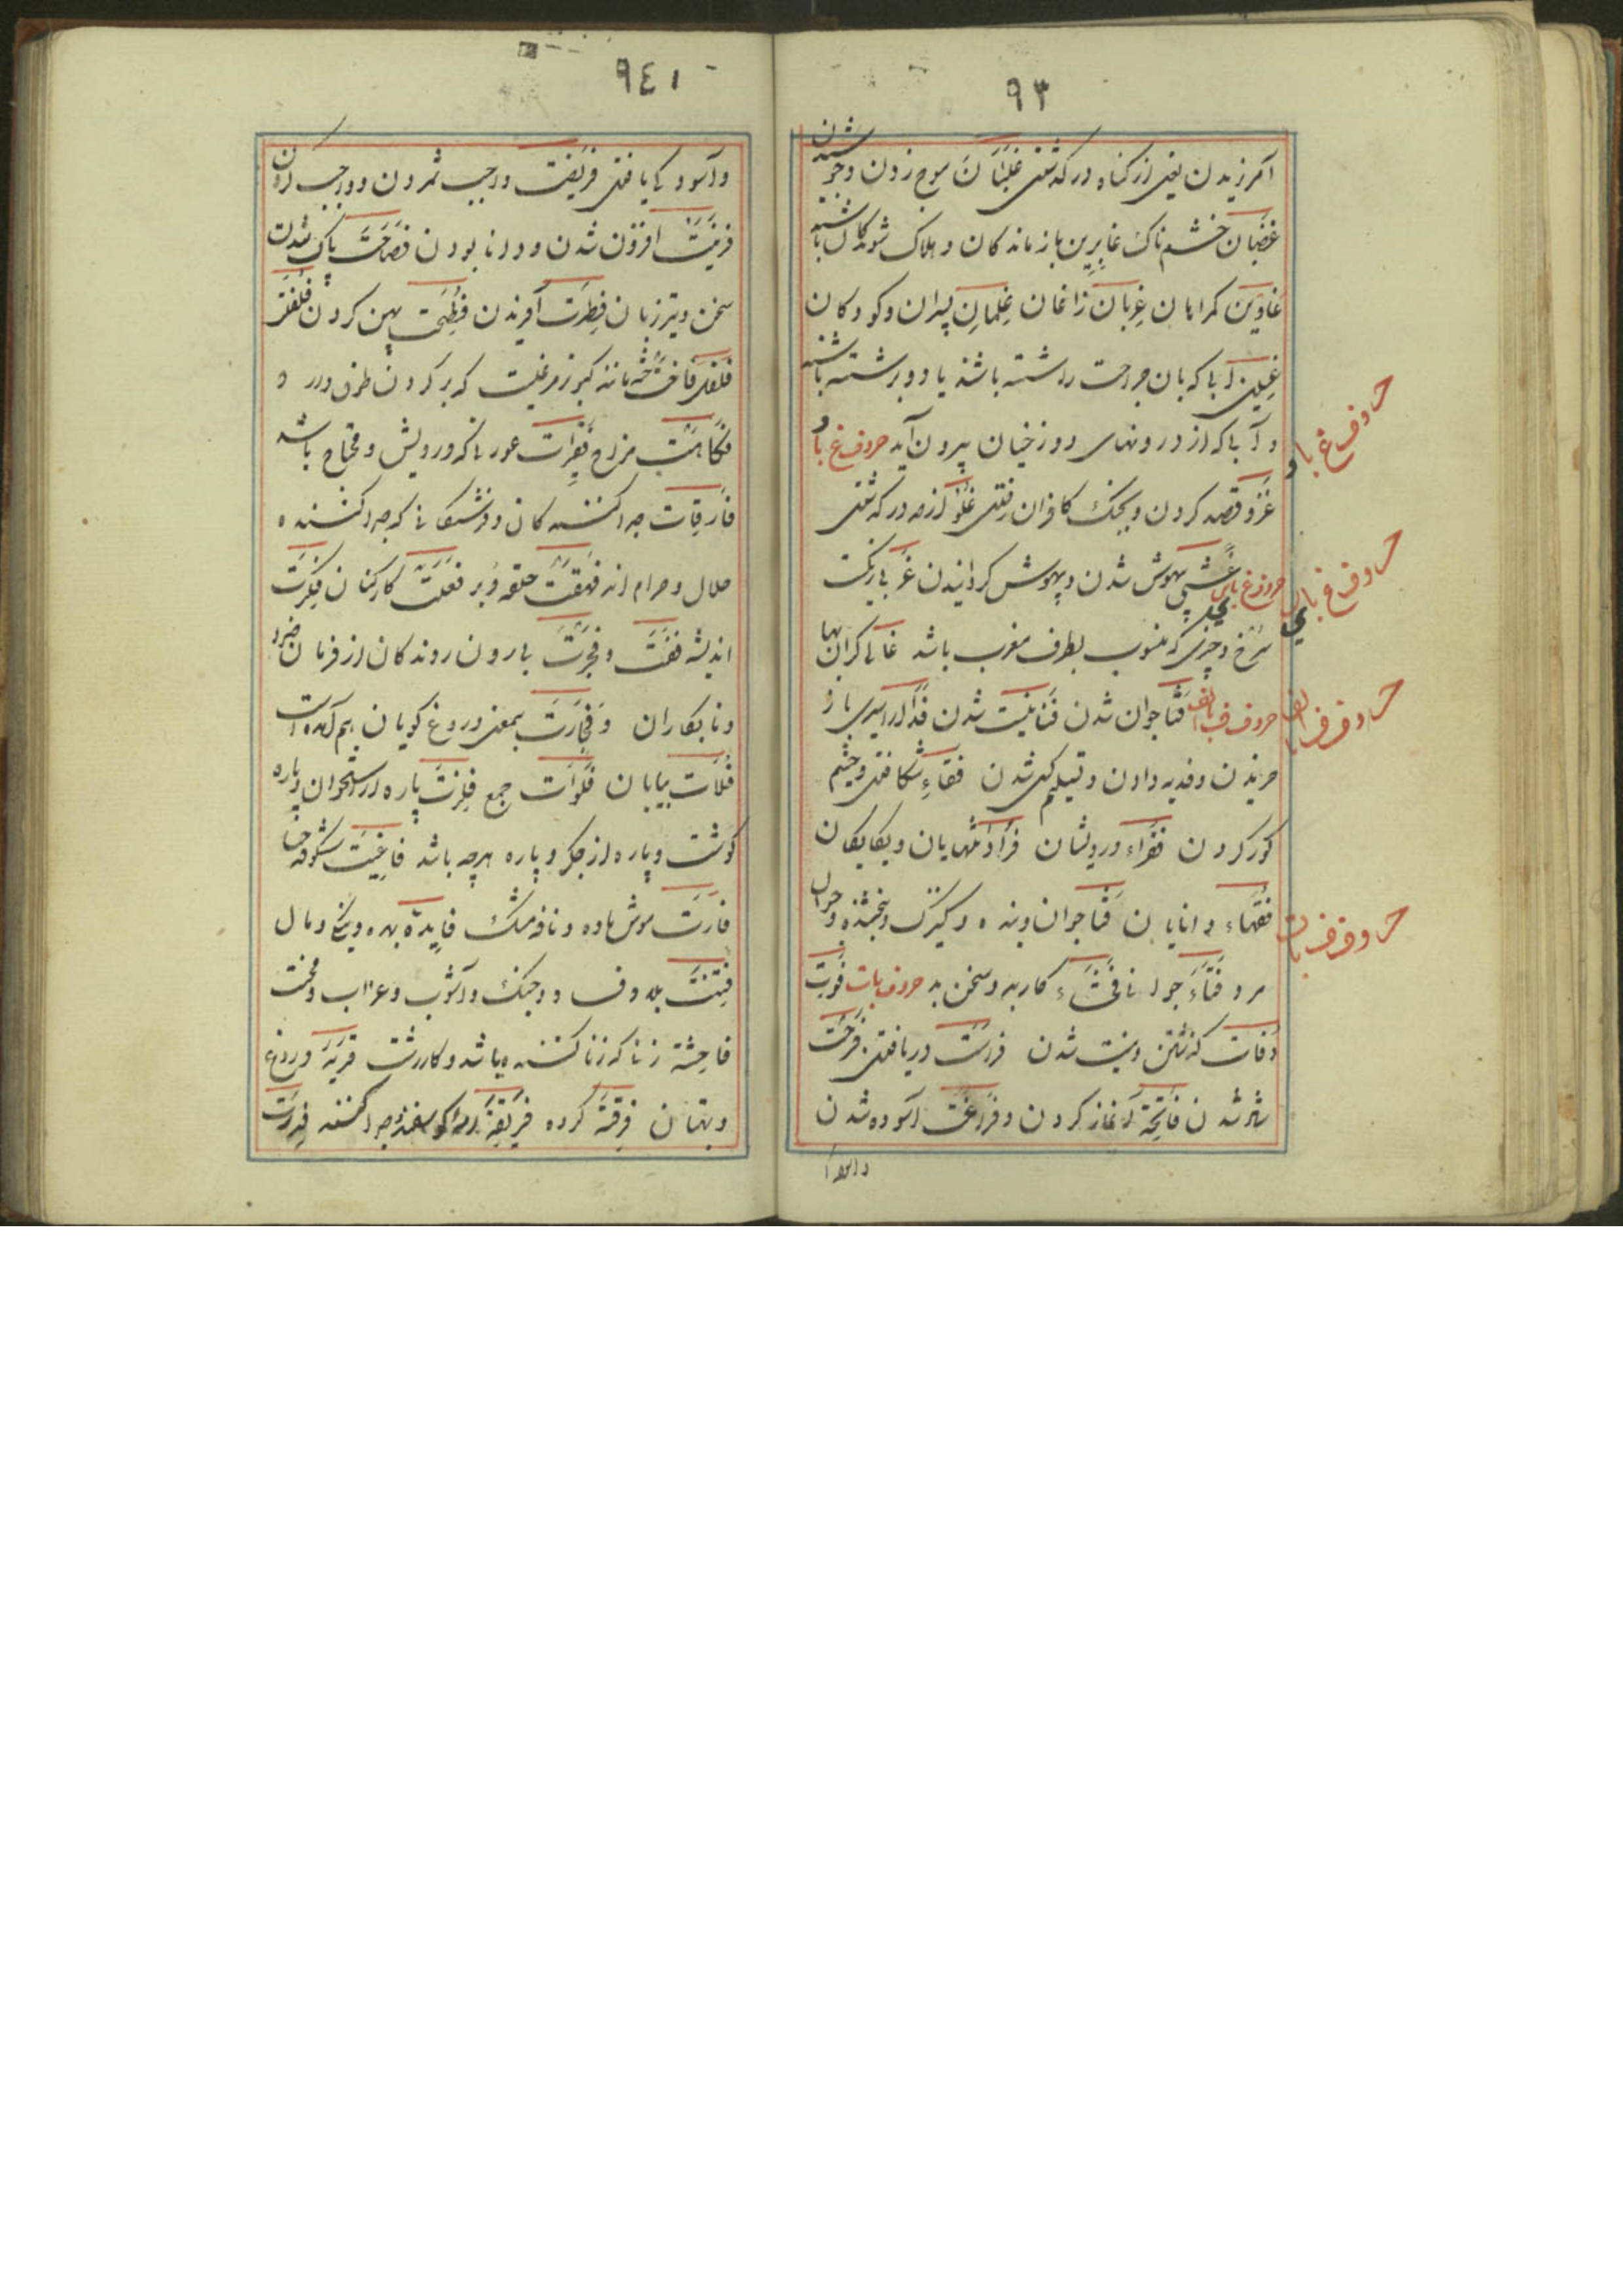 ٩٣
آمرزیدن یعنی از گناه درگذشتن غلیان موج زدن و جوشیدن
غضبان خشم ناک غابرین بازماندکان و هلاک شوندکان باشند
غاوین کمراهان غربان زاغان غلمان پسران و کودکان
غسلین آبی که بان جراحت شسته باشند یا دو برشسته باشند
و آبی که از درونهای دوزخیان بیرون آید حروف غ باو
غزو قصد کردن و بجنک کافران رفتن غلو از حد درکذشتن
حروف غ بای غشی بیهوش شدن و بیهوش کردانیدن غربی رنکیست
سرخ و چیزی که منسوب بطرف مغرب باشد غالی کران بها
حروف ف بالف فتا جوان شدن فنا نیست شدن فدا از اسیری باز
خریدن و فدیه دادن و تسلیم کسی شدن فقاء شکافتن و چشم
کور کردن فقراء درویشان فرادا تنهایان و یکایکان
فقهاء دانایان فتا جوان و بنده و کنیزک و بخشنده و جوان
مرد فتاء جوانی فحشاء کار بد و سخن بد حروف بات فوت
وفات کذشتن و نیست شدن فراست دریافتن فرحت
شاد شدن فاتحة آغاز کردن و فراغت آسوده شدن
و آسود
حروف غ باو
حروف غ بای
حروف ف بالف
حروف ف بات
٩٤١
و آسودکی یافتن فریضت واجب شمردن و واجب کردن
افزون شدن و دانا بودن فصاحت پاک شدن
سخن و تیز زبان فطرت آفریدن فطحت پهن کردن
فلفل فاخته مانند کبوتر مرغیست که بر کردن طوق دارد و
فکاهت مزاح فقرات عورتانکه درویش و محتاج باشند
فارقات جدا کننده کان و فرشتکانی که جدا کننده
حلال و حرام اند حلقه دبر فعلت کارکنان فکرت
اندیشه و فجرت بیرون روندکان از فرمان خدا
و نابکاران و فجارت بمعنی دروغ کویان هم آمده است
فلات بیابان فلوات جمع فلزت پاره از استخوان و پاره
کوشت و پاره از جکر و پاره هرچه باشد فاغیت شکوفه حنا
فارت موش ماده و نافه مشک فایدة بهره و نیکی و مال
فتنت بلا و جنک و آشوب و عذاب و محنت
فاحشة زنا که زنا کننده باشد و کار زشت فریة دروغ
و بهتان فرقة کروه فریقة جدا کننده